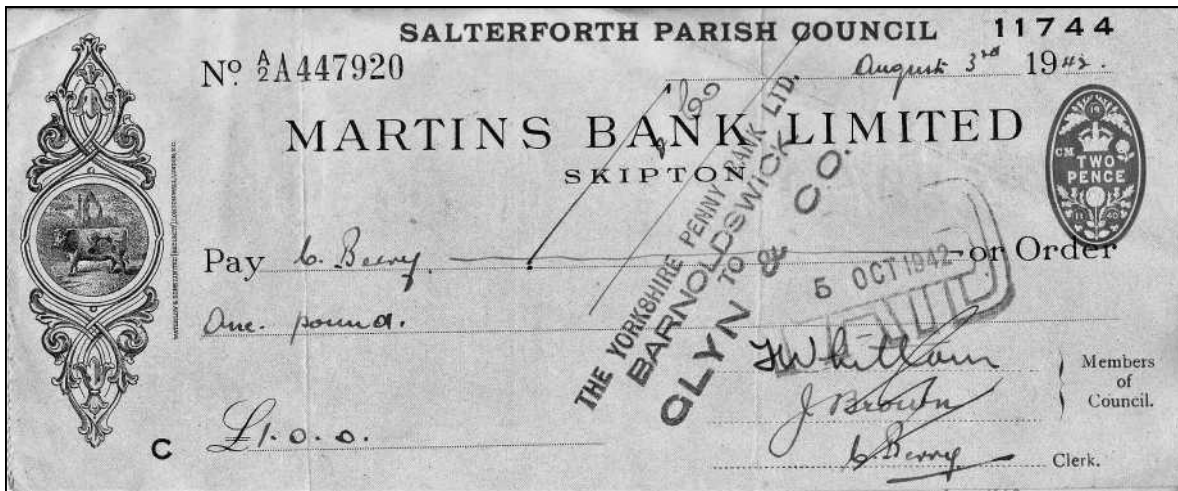 SALTERFORTH PARISH COUNCIL 11744
No A/2 A447920
August 3rd 1942.
& Co
MARTINS BANK LIMITED
SKIPTON
CM TWO PENCE
11 40
Pay C. Berry. or Order
One pound.
THE YORKSHIRE PENNY BANK LTD.
BARNOLDSWICK
TO
GLYN & CO.
5 OCT 1942
PAID
J Brown
Members
of
Council.
£1.0.0.
C
C. Berry Clerk.